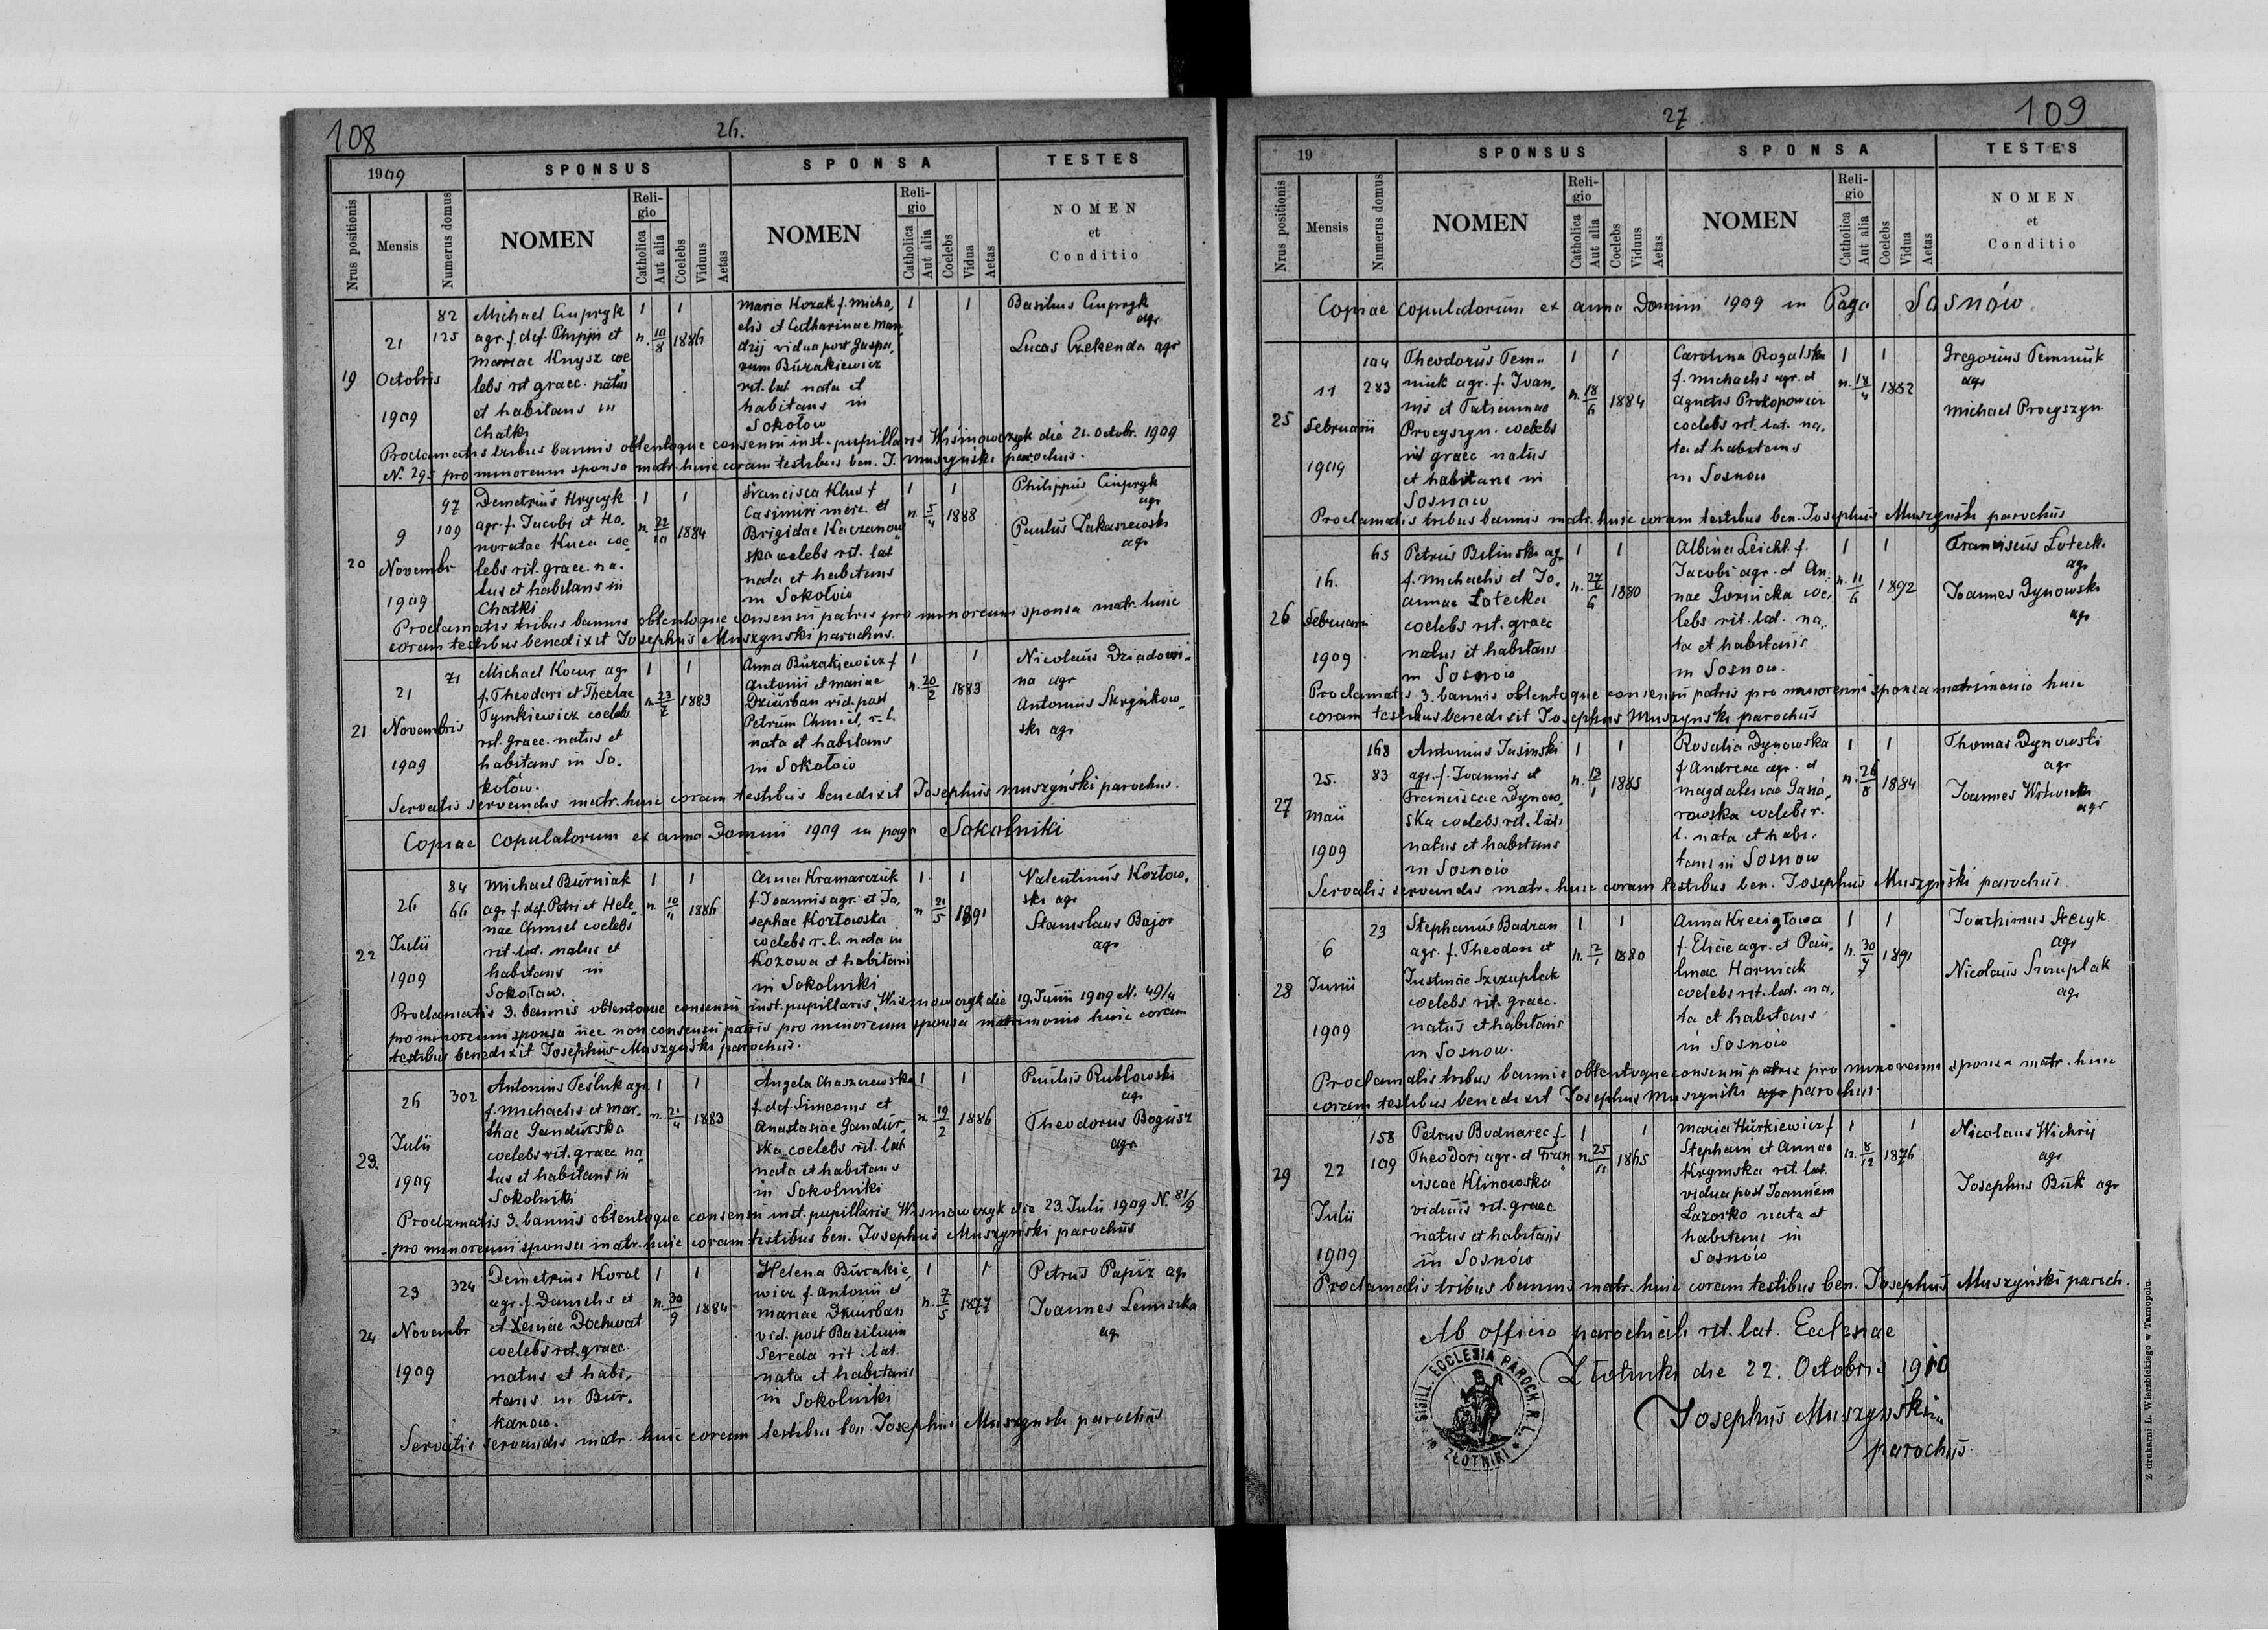 108
26.
1909
SPONSUS
SPONSA
TESTES
Nrus positionis
Mensis
Numerus domus
NOMEN
Religio
Catholica
Aut alia
Coelebs
Viduus
Aetas
NOMEN
Religio
Catholica
Aut alia
Coelebs
Vidua
Aetas
NOMEN
et
Conditio
19
21
Octobris
1909
82
125
Michael Cupryk
agr. f. def. Philippi et
Mariae Knysz coe
lebs rit graec. natus
et habitans in
Chatki
1 1
n. 10/8 1886
Maria Kozak f. Micha,
elis et Catharinae Man,
drij vidua post Gaspa,
rum Burakiewicz
rit. lat nata et
habitans in
Sokołów
1 1
Basilius Cupryk
agr
Lucas Czekenda agr
Proclamatis tribus bannis obtentoque consensu inst. pupillaris Wiśniowczyk die 21. Octobr. 1909
N. 295 pro minorenni sponsa matr. huic coram testibus ben. J. Muszyński parochus.
20
9
Novembr
1909
97
109
Demetrius Hrycyk
agr. f. Jacobi et Ho.
noratae Kuca coe,
lebs rit. graec. na.
tus et habitans in
Chatki
1 1
n. 22/10 1884
Francisca Klus f
Casimiri merc. et
Brigidae Kaczanow
ska coelebs rit. lat
nata et habitans
in Sokołów
1 1
n. 5/4 1888
Philippus Cupryk
agr
Paulus Zakaszewski
agr
Proclamatis tribus bannis obtentoque consensu patris pro minorenni sponsa matr. huic
coram testibus benedixit Josephus Muszynski parochus.
21
21
Novembris
1909
71
Michael Kocur agr
f. Theodori et Theclae
Tymkiewicz coelebs
rit. graec. natus et
habitans in So.
kołów.
1 1
n. 23/7 1883
Anna Burakiewicz f
Antonii et Mariae
Dziurban vid. post
Petrum Chmiel, r. l.
nata et habitans
in Sokołów
1 1
n. 20/2 1883
Nicolaus Dziadowi,
na agr
Antonius Skrynkow,
ski agr
Servatis servandis matr. huic coram testibus benedixit Josephus Muszyński parochus.
Copiae copulatorum ex anno Domini 1909 in pago Sokolniki
22
26
Julii
1909
84
66
Michael Burniak
agr f. def. Petri et Hele
nae Chmiel coelebs
rit. lat. natus et
habitans in
Sokołow.
1 1
n. 10/11 1886
Anna Kramarczuk
f. Joannis agr. et Jo,
sephae Kozłowska
coelebs r. l. nata in
Kozowa et habitans
in Sokolniki
1 1
n 21/5 1891
Valentinus Kozłow,
ski agr
Stanislaus Bajor
agr
Proclamatis 3. bannis obtentoque consensu inst. pupillaris Wisniowczyk die 19. Junii 1909 N. 49/4
pro minorenni sponsa nec non consensu patris pro minorenni sponsa matrimonio huic coram
testibus benedixit Josephus Muszyński parochus.
23.
26
Julii
1909
302
Antonius Teśluk agr
f. Michaelis et Mar.
thae Gandurska
coelebs rit. graec na
tus et habitans in
Sokolniki
1 1
n. 21/4 1883
Angela Chaszczewska
f. def. Simeonis et
Anastasiae Gandur.
ska coelebs rit. lat
nata et habitans
in Sokolniki
1 1
n. 19/2 1886
Paulus Rubłowski
agr
Theodorus Bogusz
agr.
Proclamatis 3. bannis obtentoque consensu inst. pupillaris Wisniowczyk die 23. Julii 1909 N. 81/9
pro minorenni sponsa matr. huic coram testibus ben. Josephus Muszyński parochus
24
23
Novembr
1909
324
Demetrius Korol
agr. f. Danielis et
et Xeniae Dochwat
coelebs rit. graec.
natus et habi,
tans in Bur.
kanow.
1 1
n. 30/9 1884
Helena Burakie,
wicz f. Antonii et
Mariae Dziurban
vid. post Basilium
Sereda rit. lat.
nata et habitans
in Sokolniki
1 1
n. 7/5 1877
Petrus Papiz agr
Joannes Lemiszka
agr
Servatis servandis matr. huic coram testibus ben. Josephus Muszynski parochus
27
109
19
SPONSUS
SPONSA
TESTES
Nrus positionis
Mensis
Numerus domus
NOMEN
Religio
Catholica
Aut alia
Coelebs
Viduus
Aetas
NOMEN
Religio
Catholica
Aut alia
Coelebs
Vidua
Aetas
NOMEN
et
Conditio
Copiae copulatorum ex anno Domini 1909 in Pago Sosnów
25
11
Februarii
1909
104
283
Theodorus Tem.
niuk agr. f. Ivan,
nis et Tatiannae
Procyszyn. coelebs
rit graec natus
et habitans in
Sosnow
1 1
n. 18/6 1884
Carolina Rogalska
f. Michaelis agr. et
Agnetis Prokopowicz
coelebs rit. lat. na,
ta et habitans
in Sosnow
1 1
n. 18/4 1882
Gregorius Temniuk
agr
Michael Procyszyn.
Proclamatis tribus bannis matr. huic coram testibus ben. Josephus Muszyński parochus
26
16.
Februarii
1909
65
Petrus Bilinski agr
f. Michaelis et Jo.
annae Łotecka
coelebs rit. graec
natus et habitans
in Sosnow
1 1
n. 27/6 1880
Albina Leicht f.
Jacobi agr. et An,
nae Gornicka coe,
lebs rit. lat. na,
ta et habitans
in Sosnow.
1 1
n. 11/6 1892
Franciscus Łotecki
agr
Joannes Dynowski
agr
Proclamatis 3. bannis obtentoque consensu patris pro minorenni sponsa matrimonio huic
coram testibus benedixit Josephus Muszynski parochus
27
25.
Maii
1909
168
83
Antonius Jasinski
agr. f. Joannis et
Franciscae Dynow,
ska coelebs rit. lat.
natus et habitans
in Sosnow
1 1
n. 13/1 1885
Rosalia Dynowska
f Andreae agr. et
Magdalenae Gasio,
rowska coelebs r.
l. nata et habi.
tans in Sosnow
1 1
n. 26/8 1884
Thomas Dynowski
agr
Joannes
agr
Servatis servandis matr. huic coram testibus ben. Josephus Muszyński parochus.
28
6
Junii
1909
23
Stephanus Badran
agr. f. Theodori et
Justinae Szczuplak
coelebs rit. graec.
natus et habitans
in Sosnow.
1 1
n. 2/1 1880
Anna Kreciglowa
f. Eliae agr. et Pau,
linae Harniak
coelebs rit. lat. na,
ta et habitans
in Sosnow
1 1
n. 30/7 1891
Joachimus Stecyk
agr
Nicolaus Szczuplak
agr
Proclamatis tribus bannis obtentoque consensu patris pro minorenni sponsa matr. huic
coram testibus benedixit Josephus Muszyński agr parochus.
29
22
Julii
1909
158
109
Petrus Bodnarec f.
Theodori agr. et Fran
ciscae Klinowska
viduus rit. graec
natus et habitans
in Sosnów
1 1
n. 25/11 1865
Maria Hurkiewicz f
Stephani et Annae
Krymska rit. lat.
vidua post Joannem
Lazorko nata et
habitans in
Sosnów
1 1
n. 8/12 1876
Nicolaus Wichrij
agr
Josephus Buk agr
Proclamatis tribus bannis matr. huic coram testibus ben. Josephus Muszyński paroch.
Ab officio parochiali rit. lat. Ecclesiae
Złotniki die 22. Octobris 1910
Josephus Muszyński
parochus
SIGILL. ECCLESIA PAROCH. R. L.
ZŁOTNIKI
Z drukarni L. Wierzbickiego w Tarnopolu.